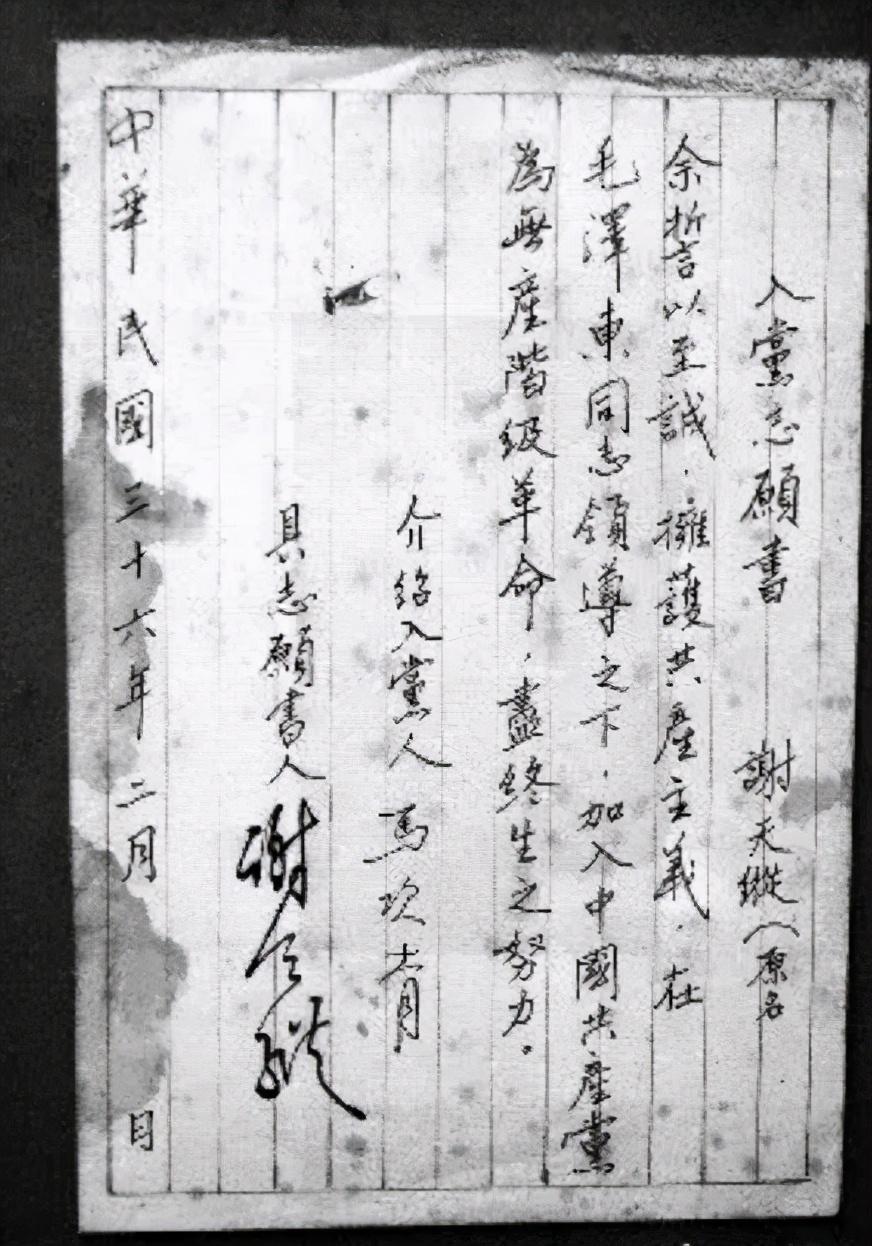 入黨志願書　謝天縱（原名
余誓以至誠，擁護共產主義，在
毛澤東同志領導之下，加入中國共產黨
為無產階級革命，盡終生之努力。
介紹入黨人　馬次青
具志願書人　謝天縱
中華民國三十六年二月　日